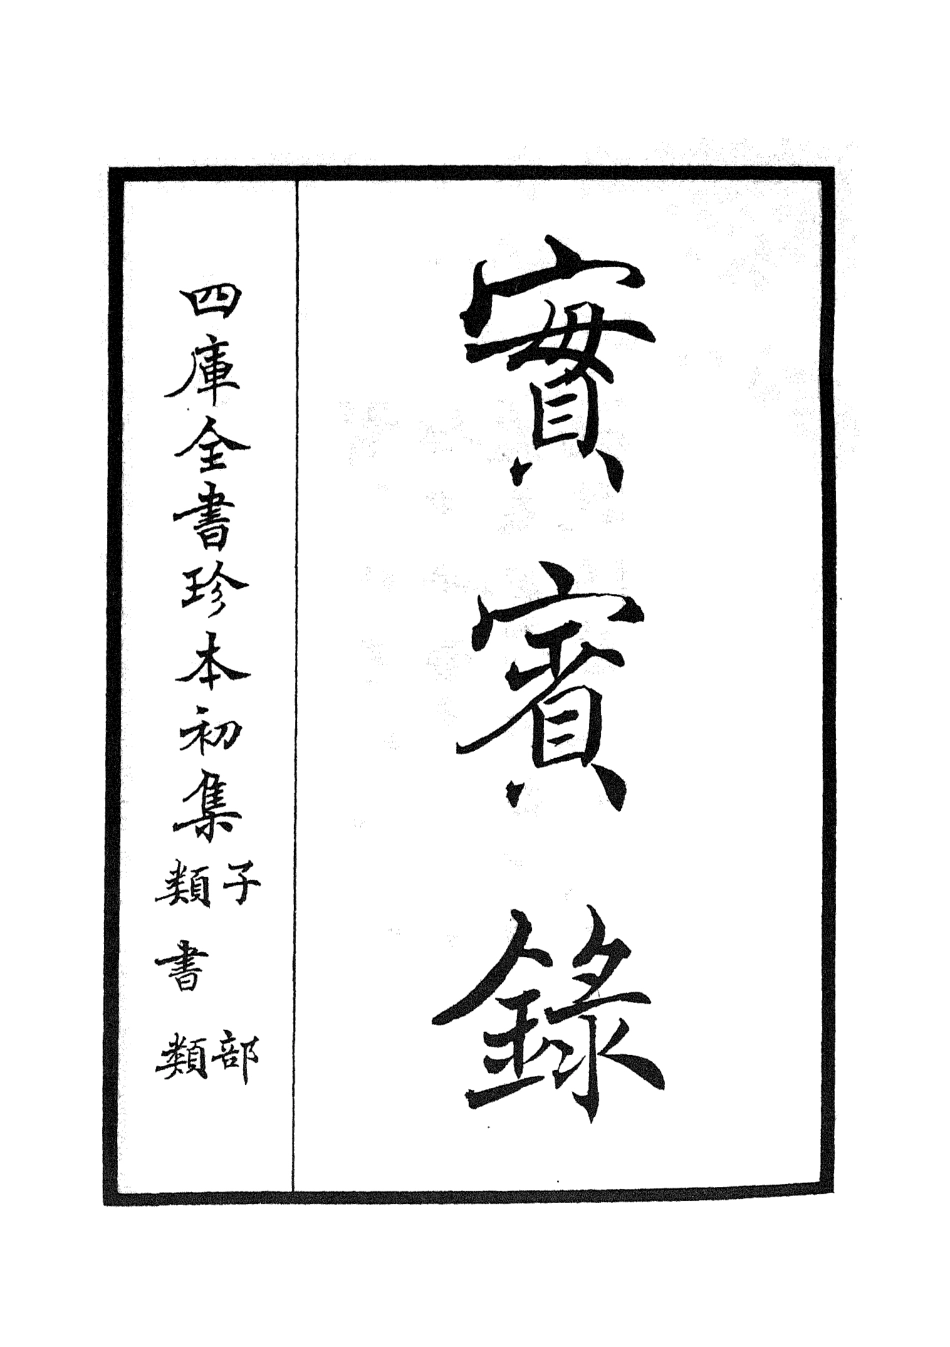 實賓錄
四庫全書珍本初集
子部
類書類